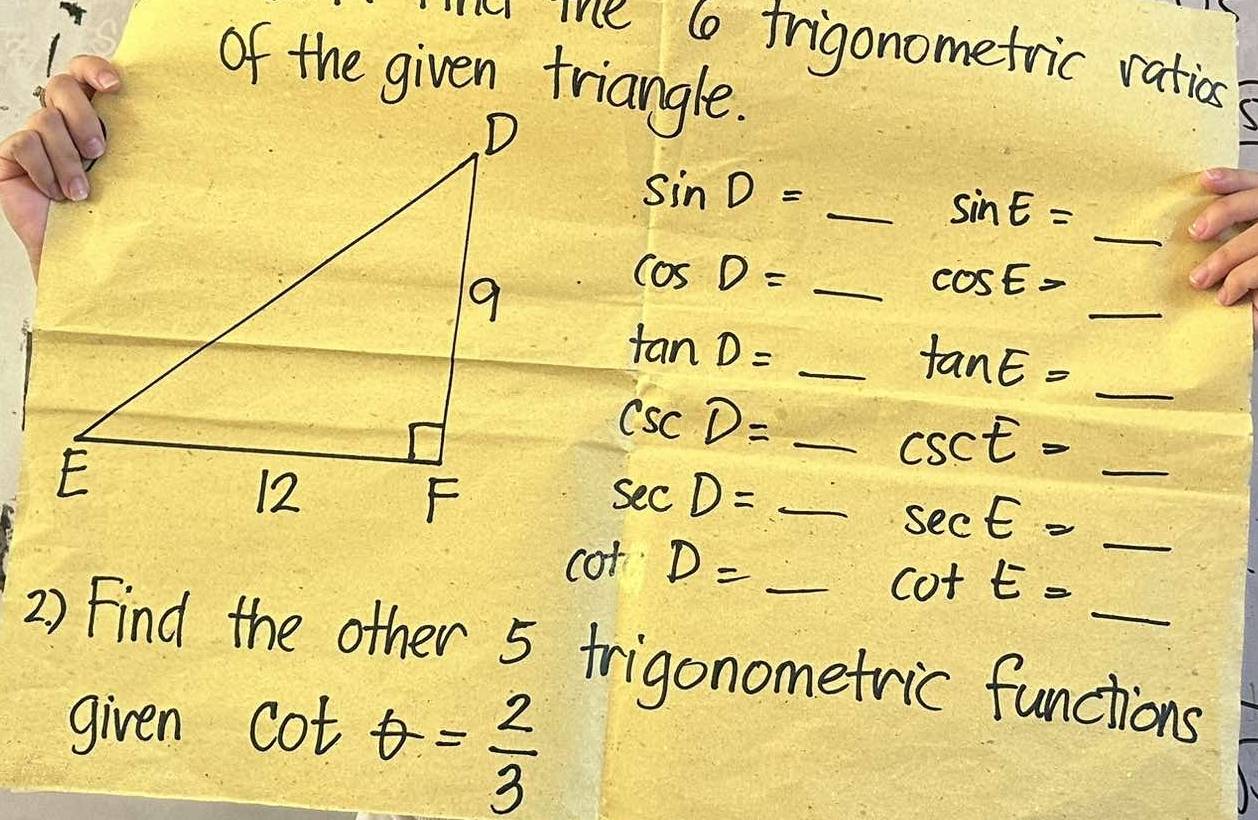 Find the 6 trigonometric ratios
Of the given triangle.
D
9
E
12
F
sin D = __ sin E = __
cos D = __ cos E = __
tan D = __ tan E = __
csc D = __ csc E = __
sec D = __ sec E = __
cot D = __ cot E = __
2.) Find the other 5 trigonometric functions
given cot θ = 2/3